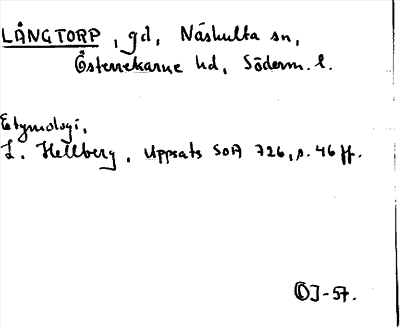 LÅNGTORP, gd, Näshulta sn,
Österrekarne hd, Söderm. l.
Etymologi,
L. Hellberg, Uppsats SOA 726, s. 46 ff.
OJ-57.